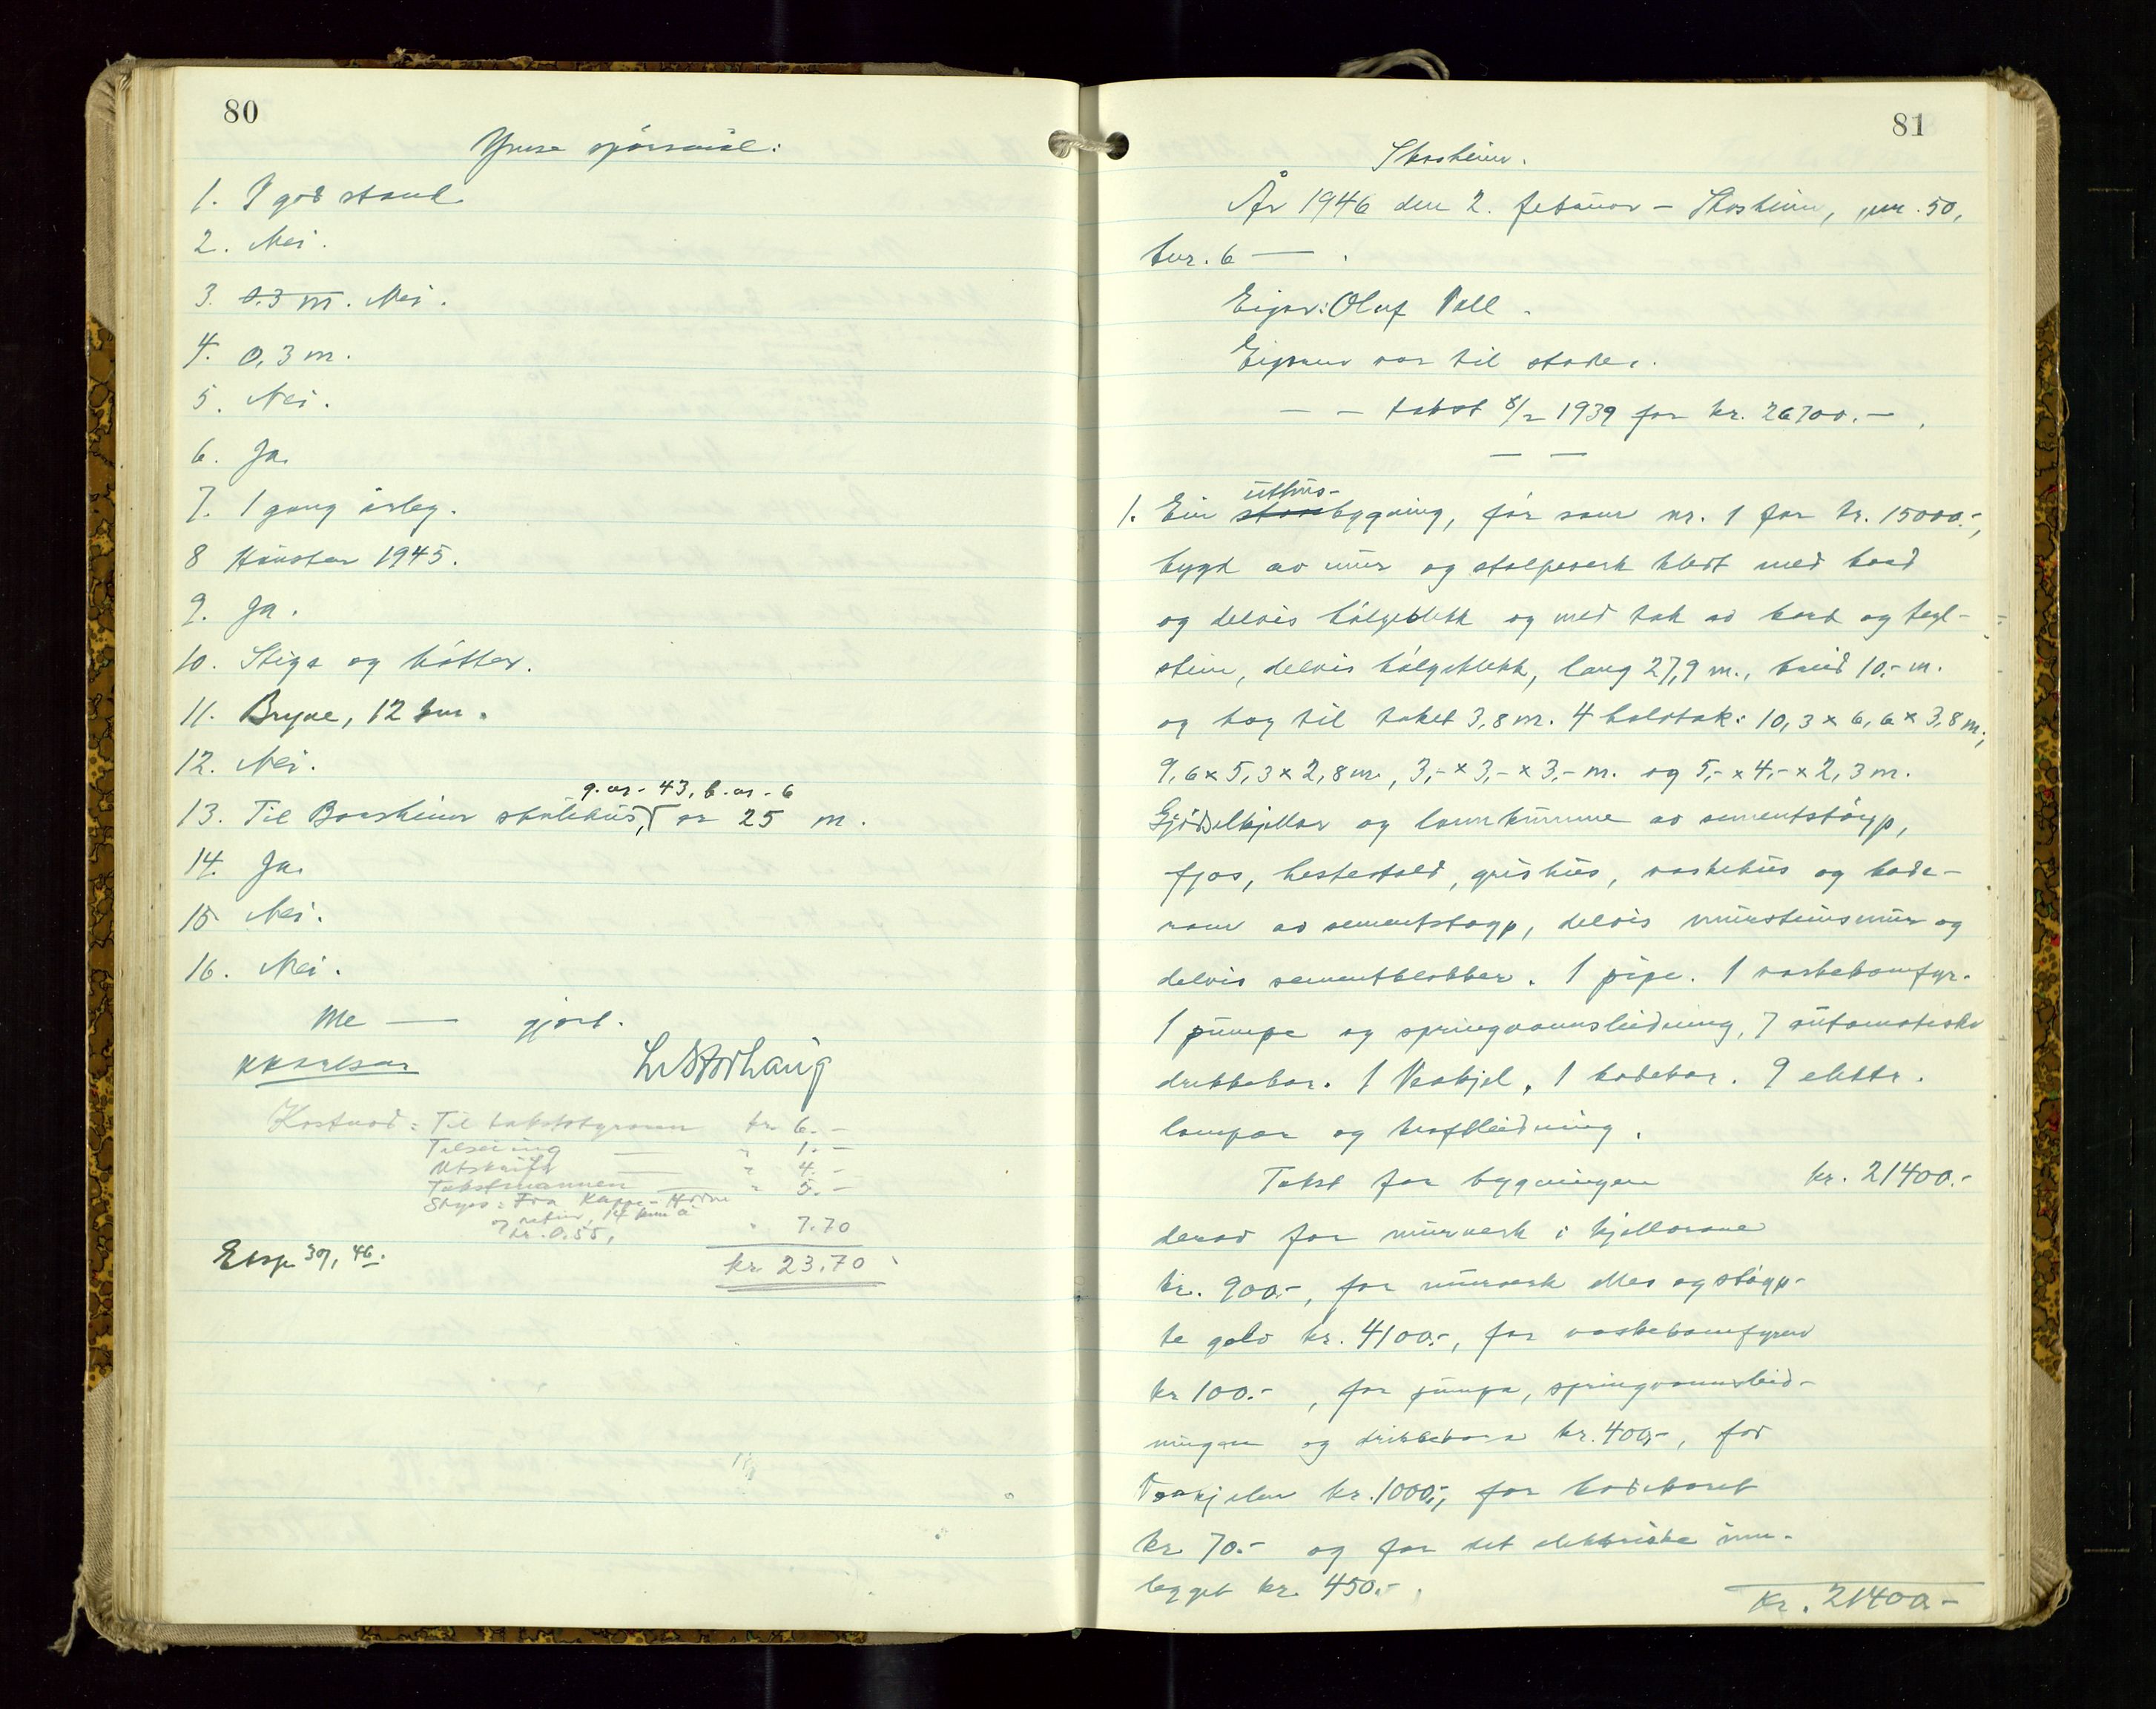 80
Ymse spörsmål:
1. I god stand
2. Nei.
3. 0.3 m. Nei.
4. 0,3 m.
5. Nei.
6. Ja.
7. 1 gang årleg.
8 Hausten 1945.
9. Ja.
10. Stiga og bötter.
11. Bryne, 12 km.
12. Nei.
g.nr. 43, b.nr. 6
13. Til Boresheim skulehus, er 25 m.
14. Ja.
15 Nei.
16. Nei.
Me — gjort.
Kostnad: Til takststyraren kr. 6.-
Tilseiing — " 1.-
Utskrift — " 4.-
Takstmannen — " 5.-
Skyss: Fra Kleppe - Horne
og retur, 14 km à
kr. 0.55, " 7.70
kr 23.70
Eksp 3/7, 46.
81
Skasheim.
År 1946 den 2. februar - Skasheim, gnr. 50,
bnr. 6 — .
Eigar: Oluf Voll.
Eigaren var til stades.
— — takst 8/2 1939 for kr. 26700.-.
— —
1. Ein uthus-
stovebygning, før som nr. 1 for kr. 15000.-,
bygd av mur og stolpeverk kledt med bord
og delvis bølgeblekk og med tak av bord og tegl-
stein, delvis bølgeblekk, lang 27,9 m., breid 10.- m.
og høg til taket 3,8 m. 4 halvtak: 10,3 x 6,6 x 3,8 m.,
9,6 x 5,3 x 2,8 m., 3,- x 3,- x 3,- m. og 5,- x 4,- x 2,3 m.
Gjødselkjellar og landkumme av sementstøyp,
fjos, hestestald, grishus, vaskehus og bade-
rom av sementstøyp, delvis mursteinsmur og
delvis sementblokker. 1 pipe. 1 vaskekomfyr.
1 pumpe og springvannsleidning, 7 automatiske
drikkekar. 1 Veakjel. 1 badekar. 9 elektr.
lampar og kraftleidning.
Takst for bygningen kr. 21400.-
derav for murverk i kjellarane
kr. 900.-, for murverk elles og støyp-
te golv kr. 4100.-, for vaskekomfyren
kr 100.-, for pumpa, springvannsleid-
ningen og drikkekara kr. 400,-, for
Veakjelen kr. 1000.-, for badekaret
kr 70.- og for det elektriske inn-
legget kr. 450.-.
Kr. 21400.-